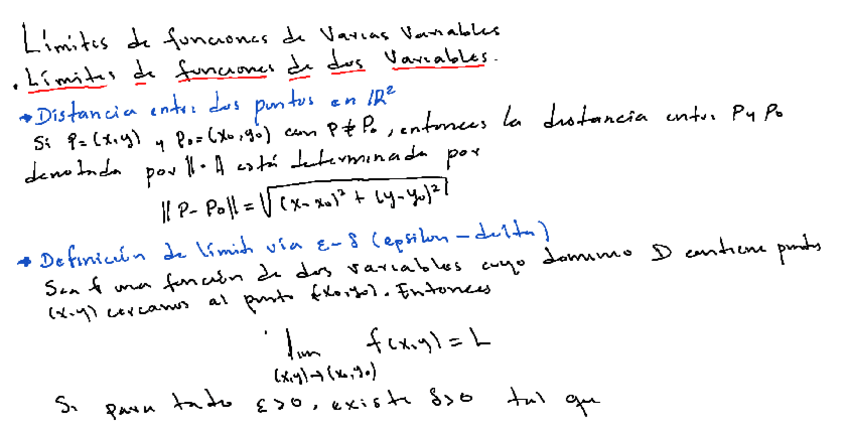 Límites de funciones de Varias Variables
. Límites de funciones de dos Variables.
→ Distancia entre dos puntos en ℝ²
Si P=(x,y) y P₀=(x₀,y₀) con P≠P₀, entonces la distancia entre P y P₀
denotada por ||·|| está determinada por
||P-P₀|| = √((x-x₀)² + (y-y₀)²)
→ Definición de límite vía ε-δ (epsilon-delta)
Sea f una función de dos variables cuyo dominio D contiene puntos
(x,y) cercanos al punto (x₀,y₀). Entonces
lim f(x,y) = L
(x,y)→(x₀,y₀)
Si para todo ε>0, existe δ>0 tal que